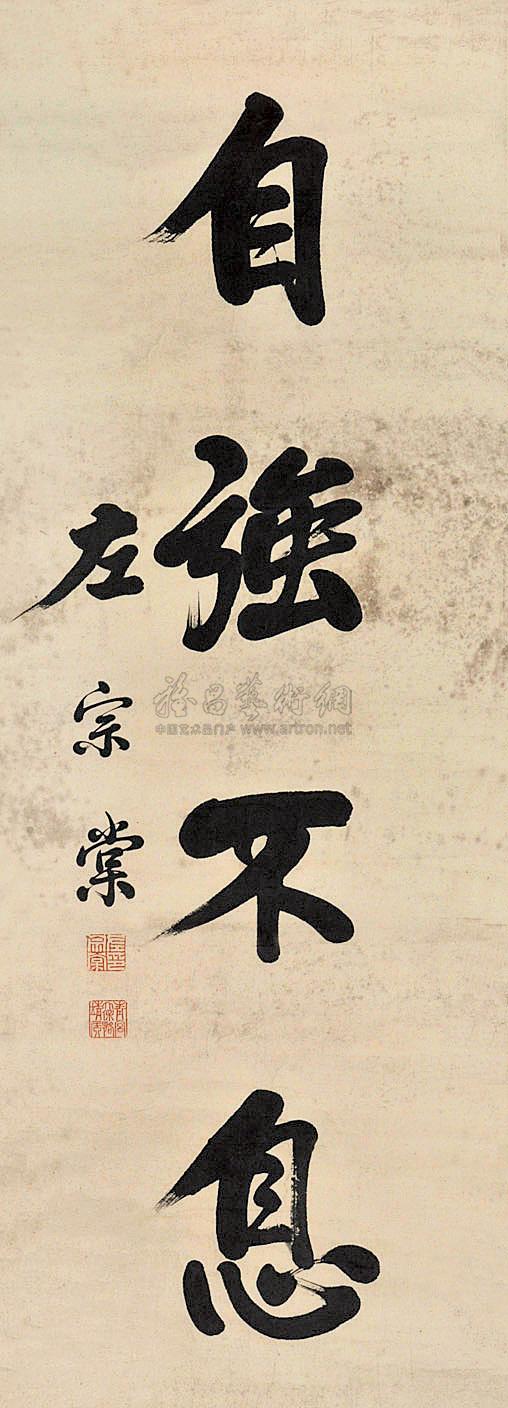 自強不息
左宗棠
雅昌藝術網
中国艺术品门户 www.artron.net